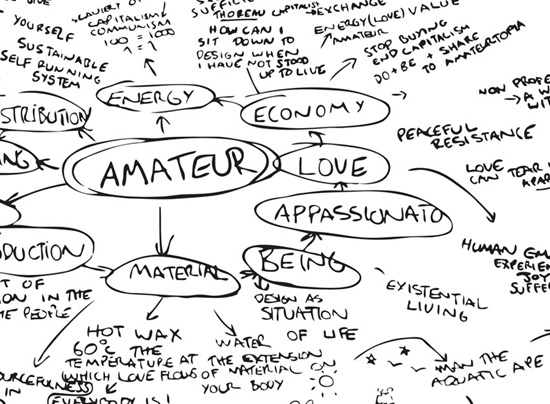 CAPITALISM/
COMMUNISM
100 = 1000
1 = 1
YOURSELF
SUSTAINABLE
SELF RUNNING
SYSTEM
THOREAU CAPITALIST
HOW CAN I
SIT DOWN TO
DESIGN WHEN
I HAVE NOT STOOD
UP TO LIVE
EXCHANGE
ENERGY (LOVE) VALUE
AMATEUR
STOP BUYING
END CAPITALISM
DO + BE + SHARE
TO AMATEURTOPIA
ENERGY
ECONOMY
STRIBUTION
NON PROFE
PEACEFUL
RESISTANCE
ING
AMATEUR
LOVE
LOVE TEAR
CAN TEAR
APAR
APPASSIONATO
ODUCTION
MATERIAL
BEING
HUMAN EM
EXPERIEN
JOY
SUFFE
DESIGN AS
SITUATION
EXISTENTIAL
LIVING
T OF
ION IN THE
THE PEOPLE
HOT WAX
60°C THE
TEMPERATURE AT THE EXTENSION
(WHICH LOVE FLOWS OF MATERIAL ON
YOUR BODY
WATER OF LIFE
MAN THE
AQUATIC APE
OURCEFULNESS)
IN
EVERYBODY IS!